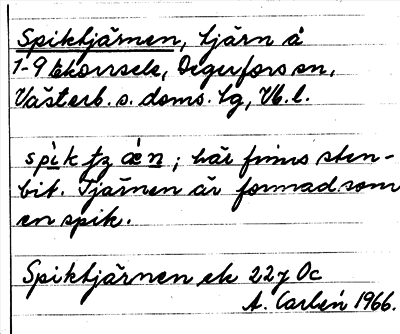 Spiktjärnen, tjärn å
1-9 Ekorrsele, Degerfors sn,
Västerb. s. doms. tg, Vb. l.
här finns sten-
bit. Tjärnen är formad som
en spik.
Spiktjärnen ek 22 7 Oc
A. Carlén 1966.